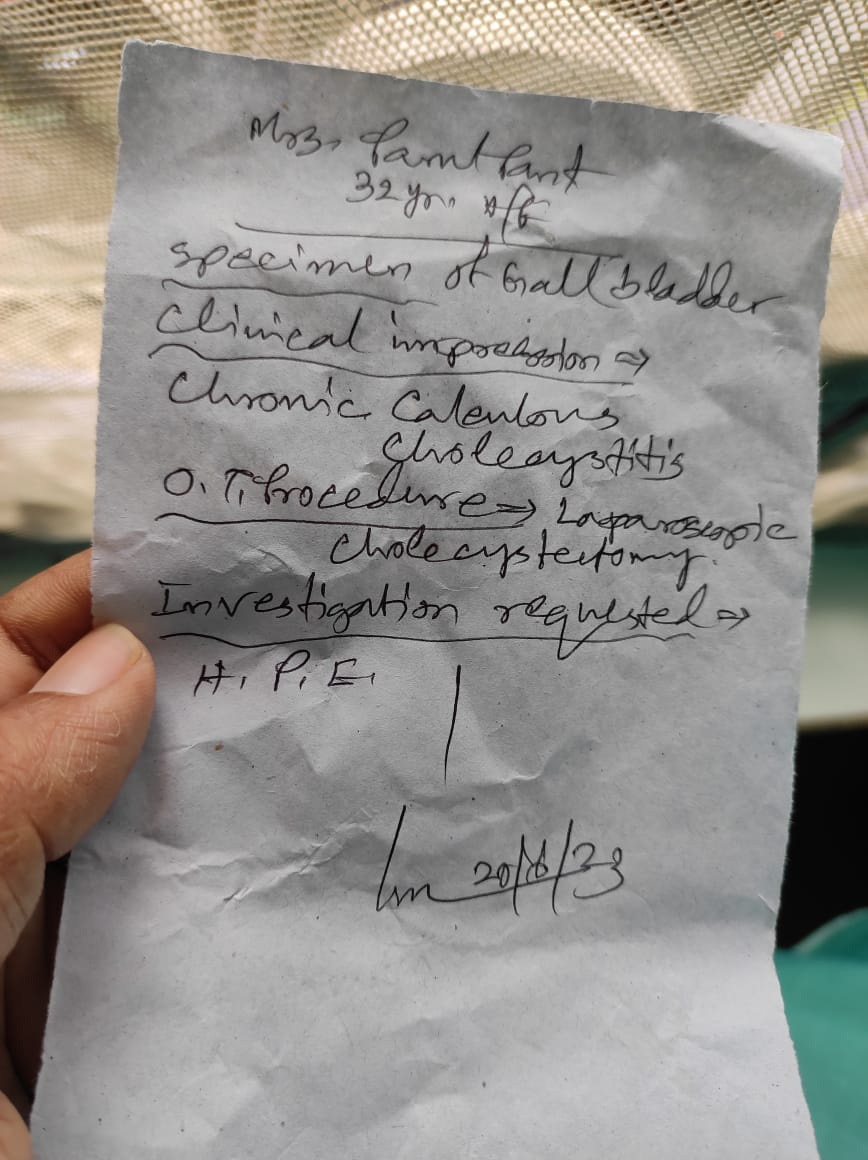 Mrs. Pant
32 yrs
Specimen of Gall bladder
Clinical impression ⇒
Chronic Calculous
Cholecystitis
O.T. Procedure ⇒ Laparoscopic
Cholecystectomy.
Investigation requested ⇒
H. P. E.
20/ /23